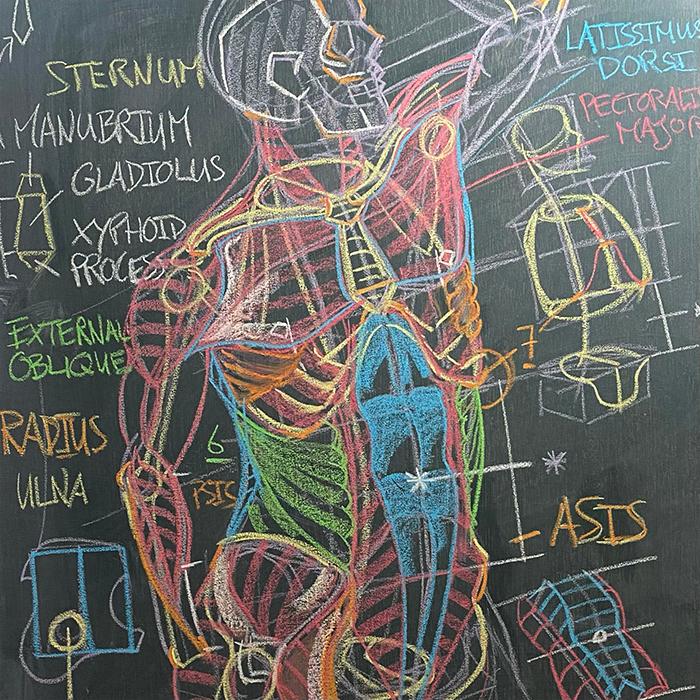 STERNUM
MANUBRIUM
GLADIOLUS
XYPHOID
PROCESS
EXTERNAL
OBLIQUE
RADIUS
ULNA
6
LATISSIMUS
DORSI
PECTORALI
MAJOR
7
ASIS